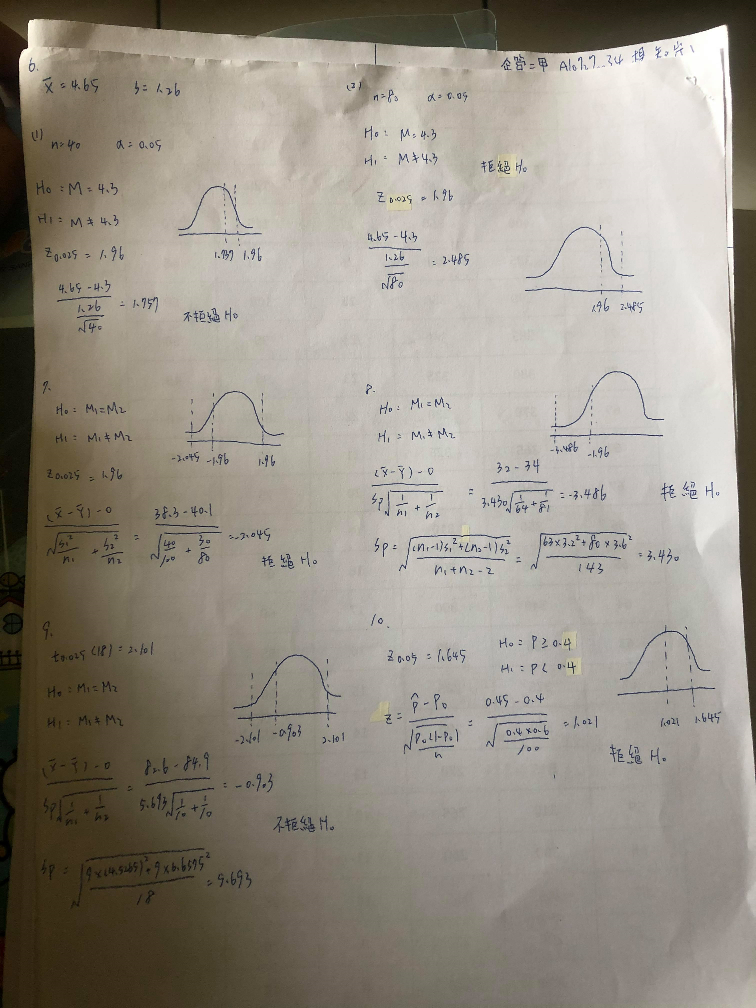 6.
x̄ = 4.65 s = 1.26
(1)
n=40 α=0.05
H0 = M = 4.3
H1 = M ≠ 4.3
Z0.025 = 1.96
1.757 1.96
(4.65-4.3)/(1.26/√40) = 1.757
不拒絕 H0
企管二甲
(2)
n=80 α=0.05
H0: M=4.3
H1: M≠4.3
拒絕 H0
Z0.025 = 1.96
(4.65-4.3)/(1.26/√80) = 2.485
1.96 2.485
7.
H0 = M1=M2
H1 = M1≠M2
Z0.025 = 1.96
-2.045 -1.96 1.96
((x̄-ȳ)-0)/√(s1²/n1 + s2²/n2) = (38.3-40.1)/√(40/100 + 30/80) = -2.045
拒絕 H0
8.
H0: M1=M2
H1: M1≠M2
-3.486 -1.96
((x̄-ȳ)-0)/(Sp√(1/n1 + 1/n2)) = (32-34)/(3.430√(1/64 + 1/81)) = -3.486
拒絕 H0
Sp = √(((n1-1)s1²+(n2-1)s2²)/(n1+n2-2)) = √((63×3.2²+80×3.6²)/143) = 3.430
9.
t0.025(18) = 2.101
H0 = M1=M2
H1 = M1≠M2
-2.101 -0.903 2.101
((x̄-ȳ)-0)/(Sp√(1/n1 + 1/n2)) = (82.6-84.9)/(5.693√(1/10 + 1/10)) = -0.903
不拒絕 H0
Sp = = 5.693
10.
Z0.05 = 1.645
H0 = P ≥ 0.4
H1 = P < 0.4
Z = (p̂-P0)/√(P0(1-P0)/n) = (0.45-0.4)/√(0.4×0.6/100) = 1.021
1.021 1.645
拒絕 H0